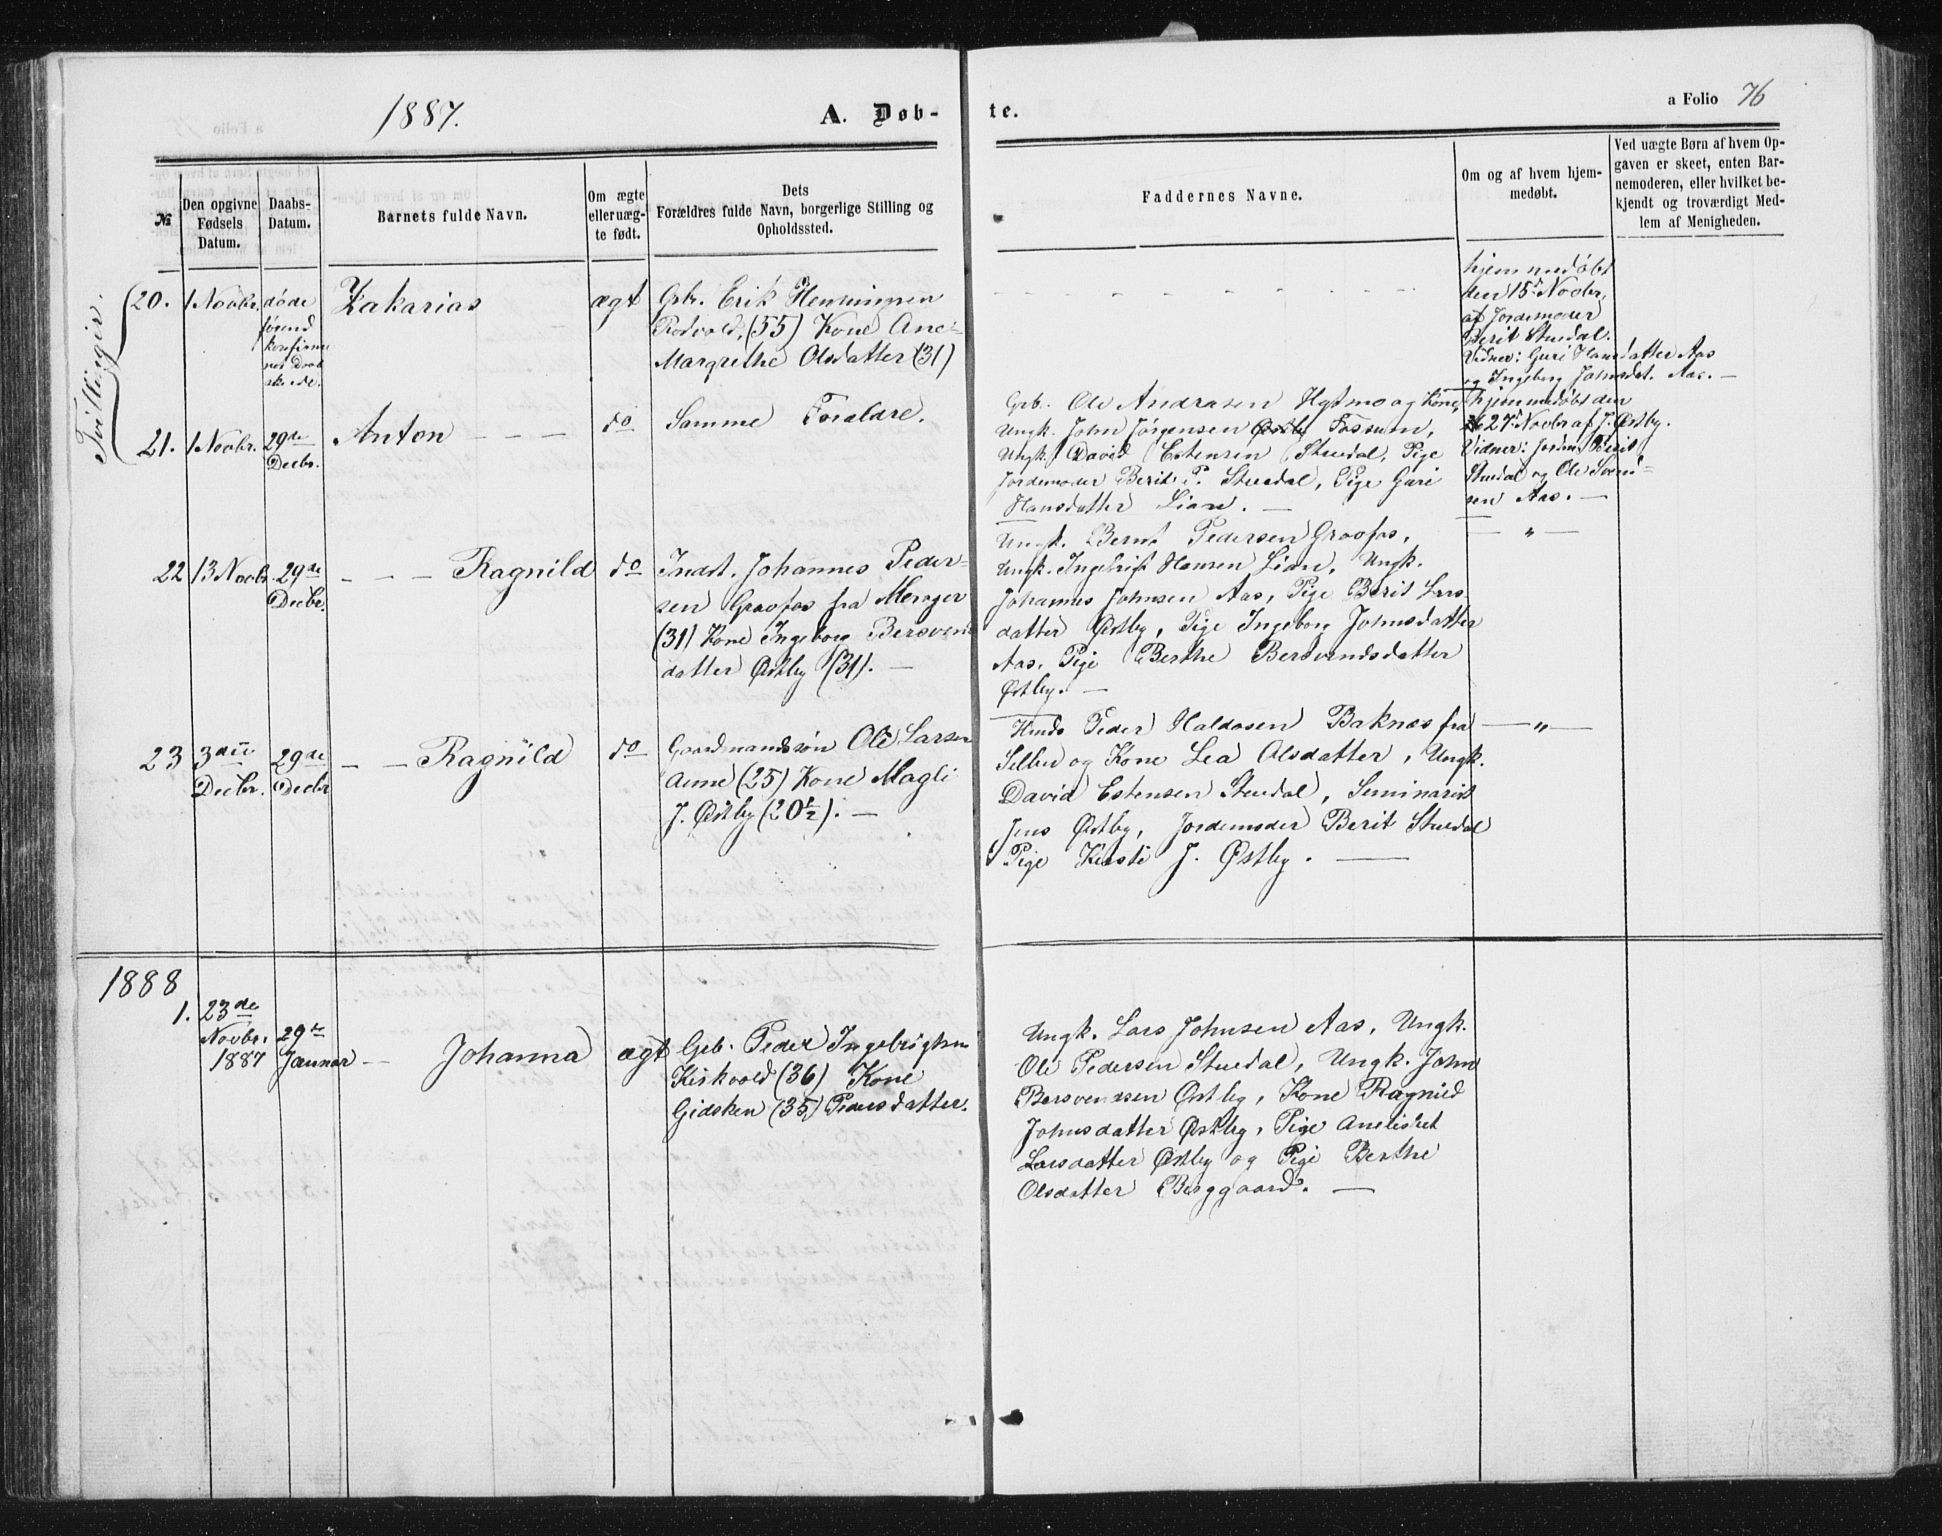 1887.
A. Døb-
te.
a Folio 76
№
Den opgivne
Fødsels
Datum.
Daabs-
Datum.
Barnets fulde Navn.
Om ægte
eller uæg-
te født.
Dets
Forældres fulde Navn, borgerlige Stilling og
Opholdssted.
Faddernes Navne.
Om og af hvem hjem-
medøbt.
Ved uægte Børn af hvem Op-
gaven er skeet, enten Bar-
nemoderen, eller hvilket be-
kjendt og troværdigt Med-
lem af Menigheden.
Tvillinger.
20.
1 Novbr.
døde
førend
Zakarias
ægt
Gbr. Erik Hemmingsen
(55) Kone Ane
Margrethe Olsdatter (31)
hjemmedøbt
den 15de Novbr.
af Jordemoder
Berit Stuedal.
Vidner: Guri Hansdatter Aas
og Ingeborg Johnsdat. Aas. —
21.
1 Novbr.
29de
Decbr.
Anton - - -
do
Samme Forældre.
Grb. Ole Andreasen Hytmo og Kone,
Ungk. John Jørgensen Fossum,
Ungk. David Estensen Stuedal, Pige
Jordemoder Berit P. Stuedal, Pige Guri
Hansdatter Lian. —
hjemmedøbt den
27de Novbr af J. Østby.
Vidner: Jordm. Berit
Stuedal og Ole Svend-
sen Aas. —
22
13 Novbr.
29de
Decbr.
- - - Ragnild
do
Indst. Johannes Peder-
sen Graafos fra Merager
(31) Kone Ingeborg Bersvens
datter Østby (31). —
Ungk. Bernt Pedersen Graafos,
Ungk. Ingebrigt Hansen Lian, Ungk.
Johannes Johnsen Aas, Pige Berit Lars
datter Østby, Pige Ingeborg Johnsdatter
Aas, Pige Berthe Bersvendsdatter
Østby. —
— " —
23
3die
Decbr.
29de
Decbr
- - Ragnild
do
Gaardmandssøn Ole Larsen
Aune (25) Kone Magli
J. Østby (20½). —
Peder Haldosen Baknæs fra
Selbu og Kone Lea Olsdatter, Ungk.
David Estensen Stuedal, Seminarist
Jens Østby, Jordemoder Berit Stuedal
Pige Kirsti J. Østby. —
— " —
1888
1.
23de
Novbr.
1887
29de
Januar
- Johanna
ægt
Grb. Peder Ingebrigtsen
Kirkvold (36) Kone
Gidsken (35) Pedersdatter.
Ungk. Lars Johnsen Aas, Ungk.
Ole Pedersen Stuedal, Ungk. John
Bersvendsen Østby, Kone Ragnild
Johnsdatter Østby, Pige Anelisbet
Larsdatter Østby og Pige Berthe
Olsdatter Berggaard. —